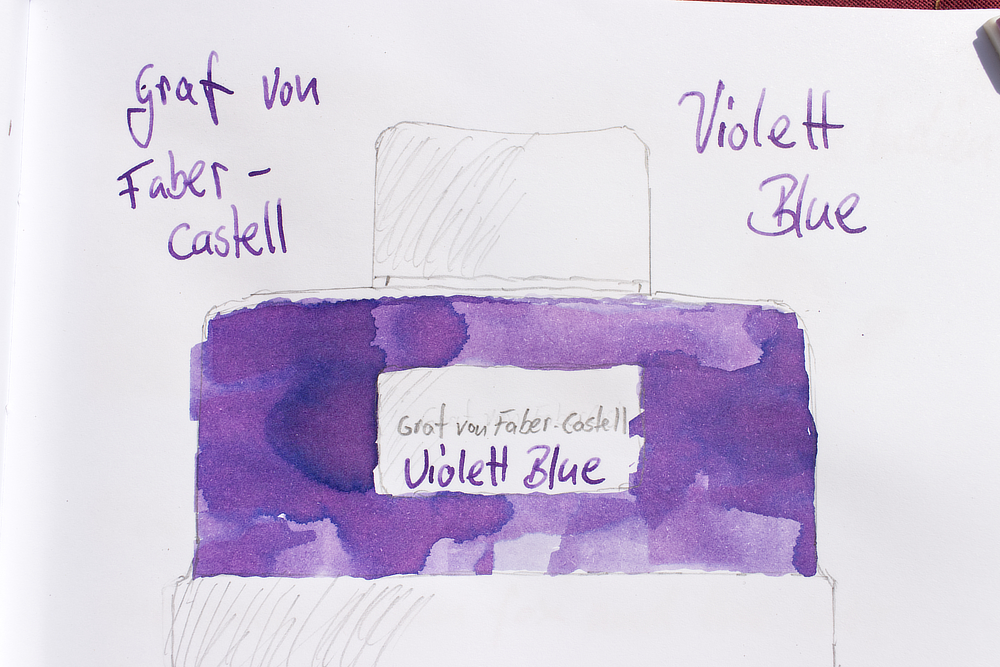 Graf von
Faber-
Castell
Violett
Blue
Graf von Faber-Castell
Violett Blue